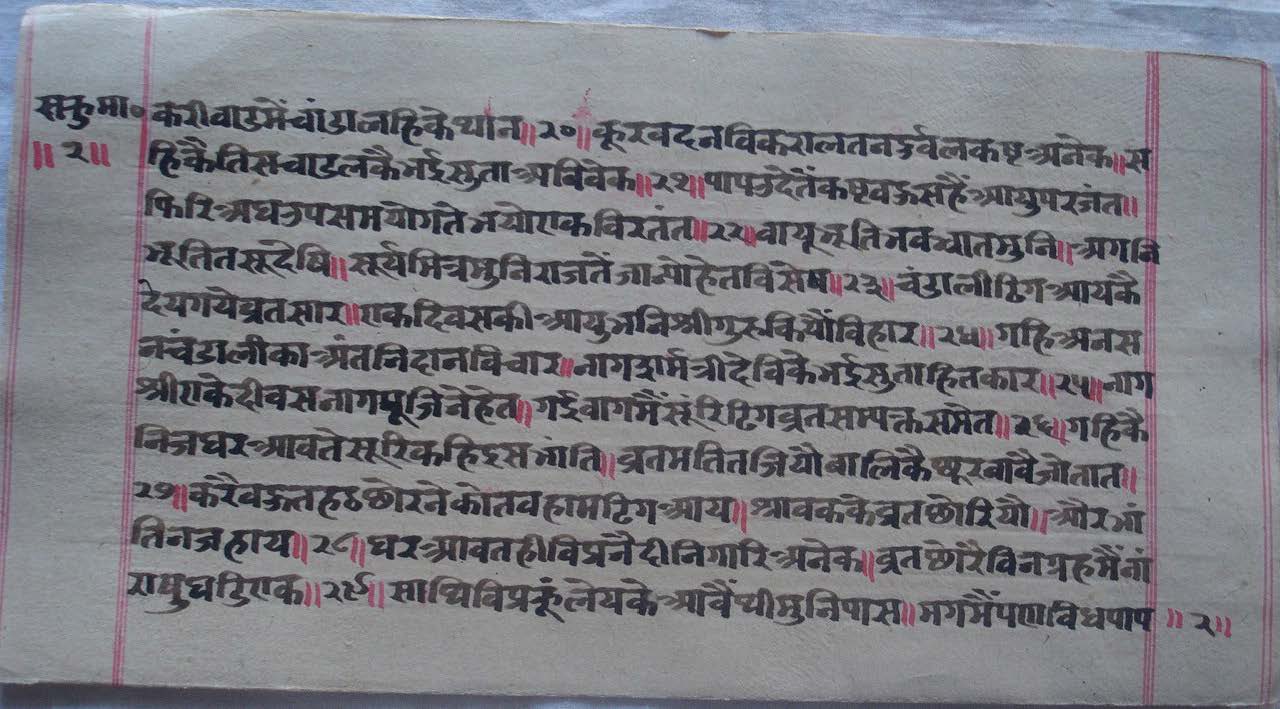 सकुमा० करीवाडमेंचांडालहिकेथांन॥२०॥कूरवदनविकरालतनदुर्वलकष्टअनेक॥स
॥२॥ हिकैतिसचाडलकैभईसुताअविवेक॥२१॥पापउदेतेंकष्टवऊसहैंआयुपरजंत॥
फिरिअघउपसमयोगतेभयोएकविरतंत॥२२॥वायूभूतिभवभ्रातमुनि॥अगनि
भूतितसूदेषि॥सूर्यमित्रमुनिराजतेंजान्योहेतविसेष॥२३॥चंडालीढिगआयकै
देयगयेव्रतसार॥एकदिवसकीआयुभनिश्रीगुरुकियौंविहार॥२४॥गहिअनस
नचंडालीकाअंतनिदानविचार॥नागशर्मत्रीदेविकेभईसुताहितकार॥२५॥नाग
श्रीएकेदीवसनागपूजिनेहेत॥गईवागमैंसूरिढिगव्रतसम्पक्तसमेत॥२६॥गहिकै
निजघरआवतेसूरिकहिइसभांति॥व्रतमतितजियौवालिकैछूरवावैजोतात॥
२७॥करैवऊतहठछोरनेकोतवहामढिगआय॥श्रावककेव्रतछोरियौ॥औरभां
तिनजहाय॥२८॥घरआवतहीविप्रनैदीनिगारिअनेक॥व्रतछोरैविनग्रहमैंनां
राषुघरिएक॥२९॥साथिविप्रकूंलेयकेआवैंथीमुनिपास॥मगमैंपणविधपाप ॥२॥